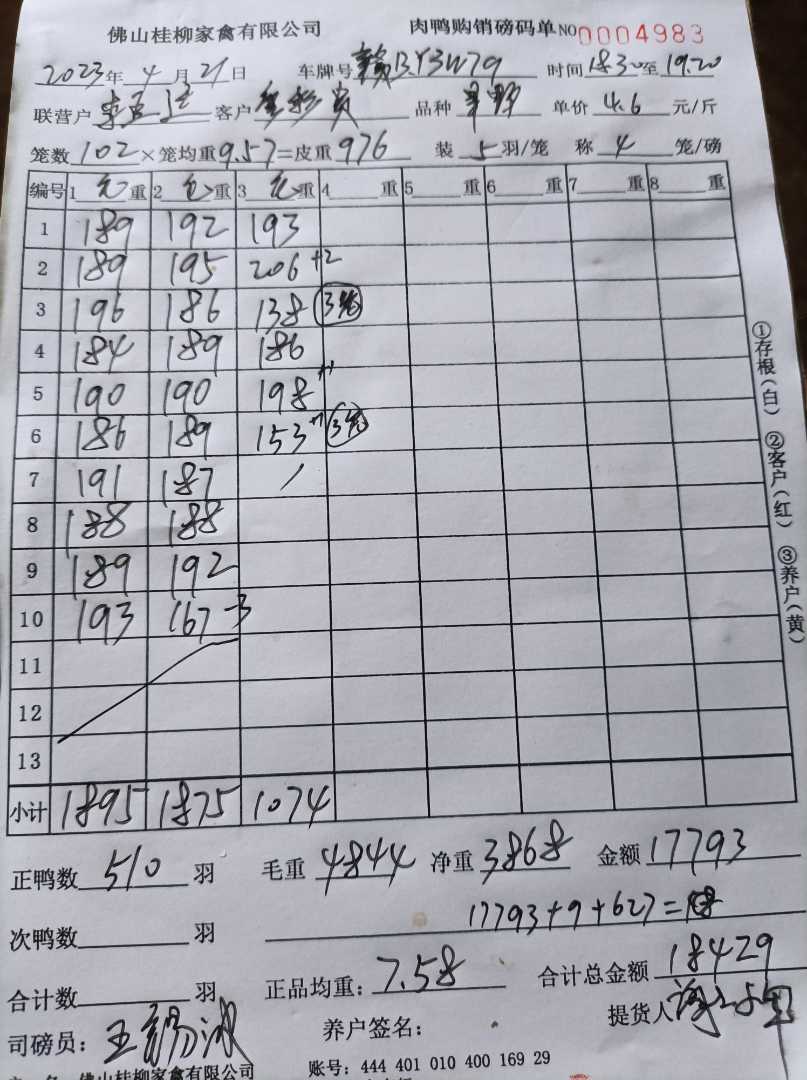 佛山桂柳家禽有限公司 肉鸭购销磅码单 NO 0004983
2023年 4 月 21 日 车牌号 赣B.Y3W79 时间 18.30 至 19.20
联营户 客户 品种 单价 4.6 元/斤
笼数 102 ×笼均重 9.57 =皮重 976 装 5 羽/笼 称 4 笼/磅
编号 1 重 2 重 3 重 4 重 5 重 6 重 7 重 8 重
1 189 192 193
2 189 195 206 +2
3 196 186 138
4 184 189 186
5 190 190 198 +1
6 186 189 153 +1
7 191 187 /
8 188 188
9 189 192
10 193 167 -3
11
12
13
小计 1895 1875 1074
①存根(白) ②客户(红) ③养户(黄)
正鸭数 510 羽 毛重 4844 净重 3868 金额 17793
次鸭数 羽 17793+9+627=
合计数 羽 正品均重: 7.58 合计总金额 18429
司磅员: 养户签名: 提货人
佛山桂柳家禽有限公司 账号: 444 401 010 400 169 29